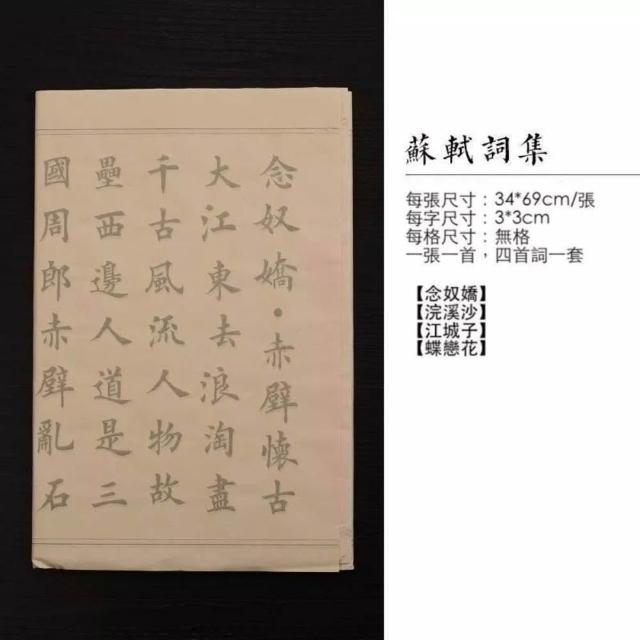 念奴嬌·赤壁懷古
大江東去浪淘盡
千古風流人物故
壘西邊人道是三
國周郎赤壁亂石
蘇軾詞集
每張尺寸：34*69cm/張
每字尺寸：3*3cm
每格尺寸：無格
一張一首，四首詞一套
【念奴嬌】
【浣溪沙】
【江城子】
【蝶戀花】